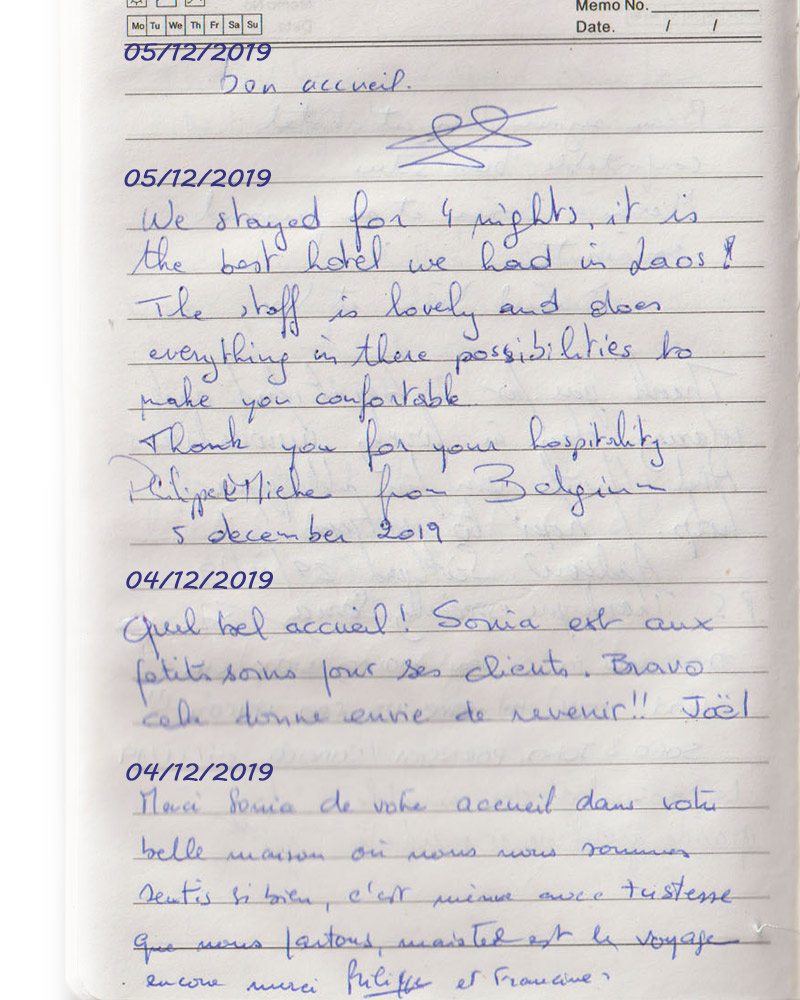 Memo No.
Mo Tu We Th Fr Sa Su
Date. / /
05/12/2019
bon accueil.
05/12/2019
We stayed for 4 nights, it is
the best hotel we had in Laos !
The staff is lovely and does
everything in there possibilities to
make you confortable
Thank you for your hospitality
Philippe & Miche from Belgium
5 december 2019
04/12/2019
Quel bel accueil! Sonia est aux
petits soins pour ses clients. Bravo
cela donne envie de revenir!! Joël
04/12/2019
Merci Sonia de votre accueil dans votre
belle maison où nous nous sommes
sentis si bien, c'est même avec tristesse
que nous partons, mais tel est le voyage
encore merci Philippe et Francine